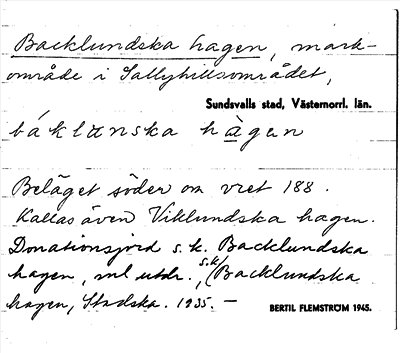 Backlundska hagen, mark-
område i Sallyhillsområdet,
Sundsvalls stad, Västernorrl. län.
báklanska hàgen
Beläget söder om vret 188.
Kallas även Viklundska hagen.
Donationsjord s.k. Backlundska
hagen, ml utdr., s.k. (Backlundska
hagen, Stadska. 1935. –
BERTIL FLEMSTRÖM 1945.